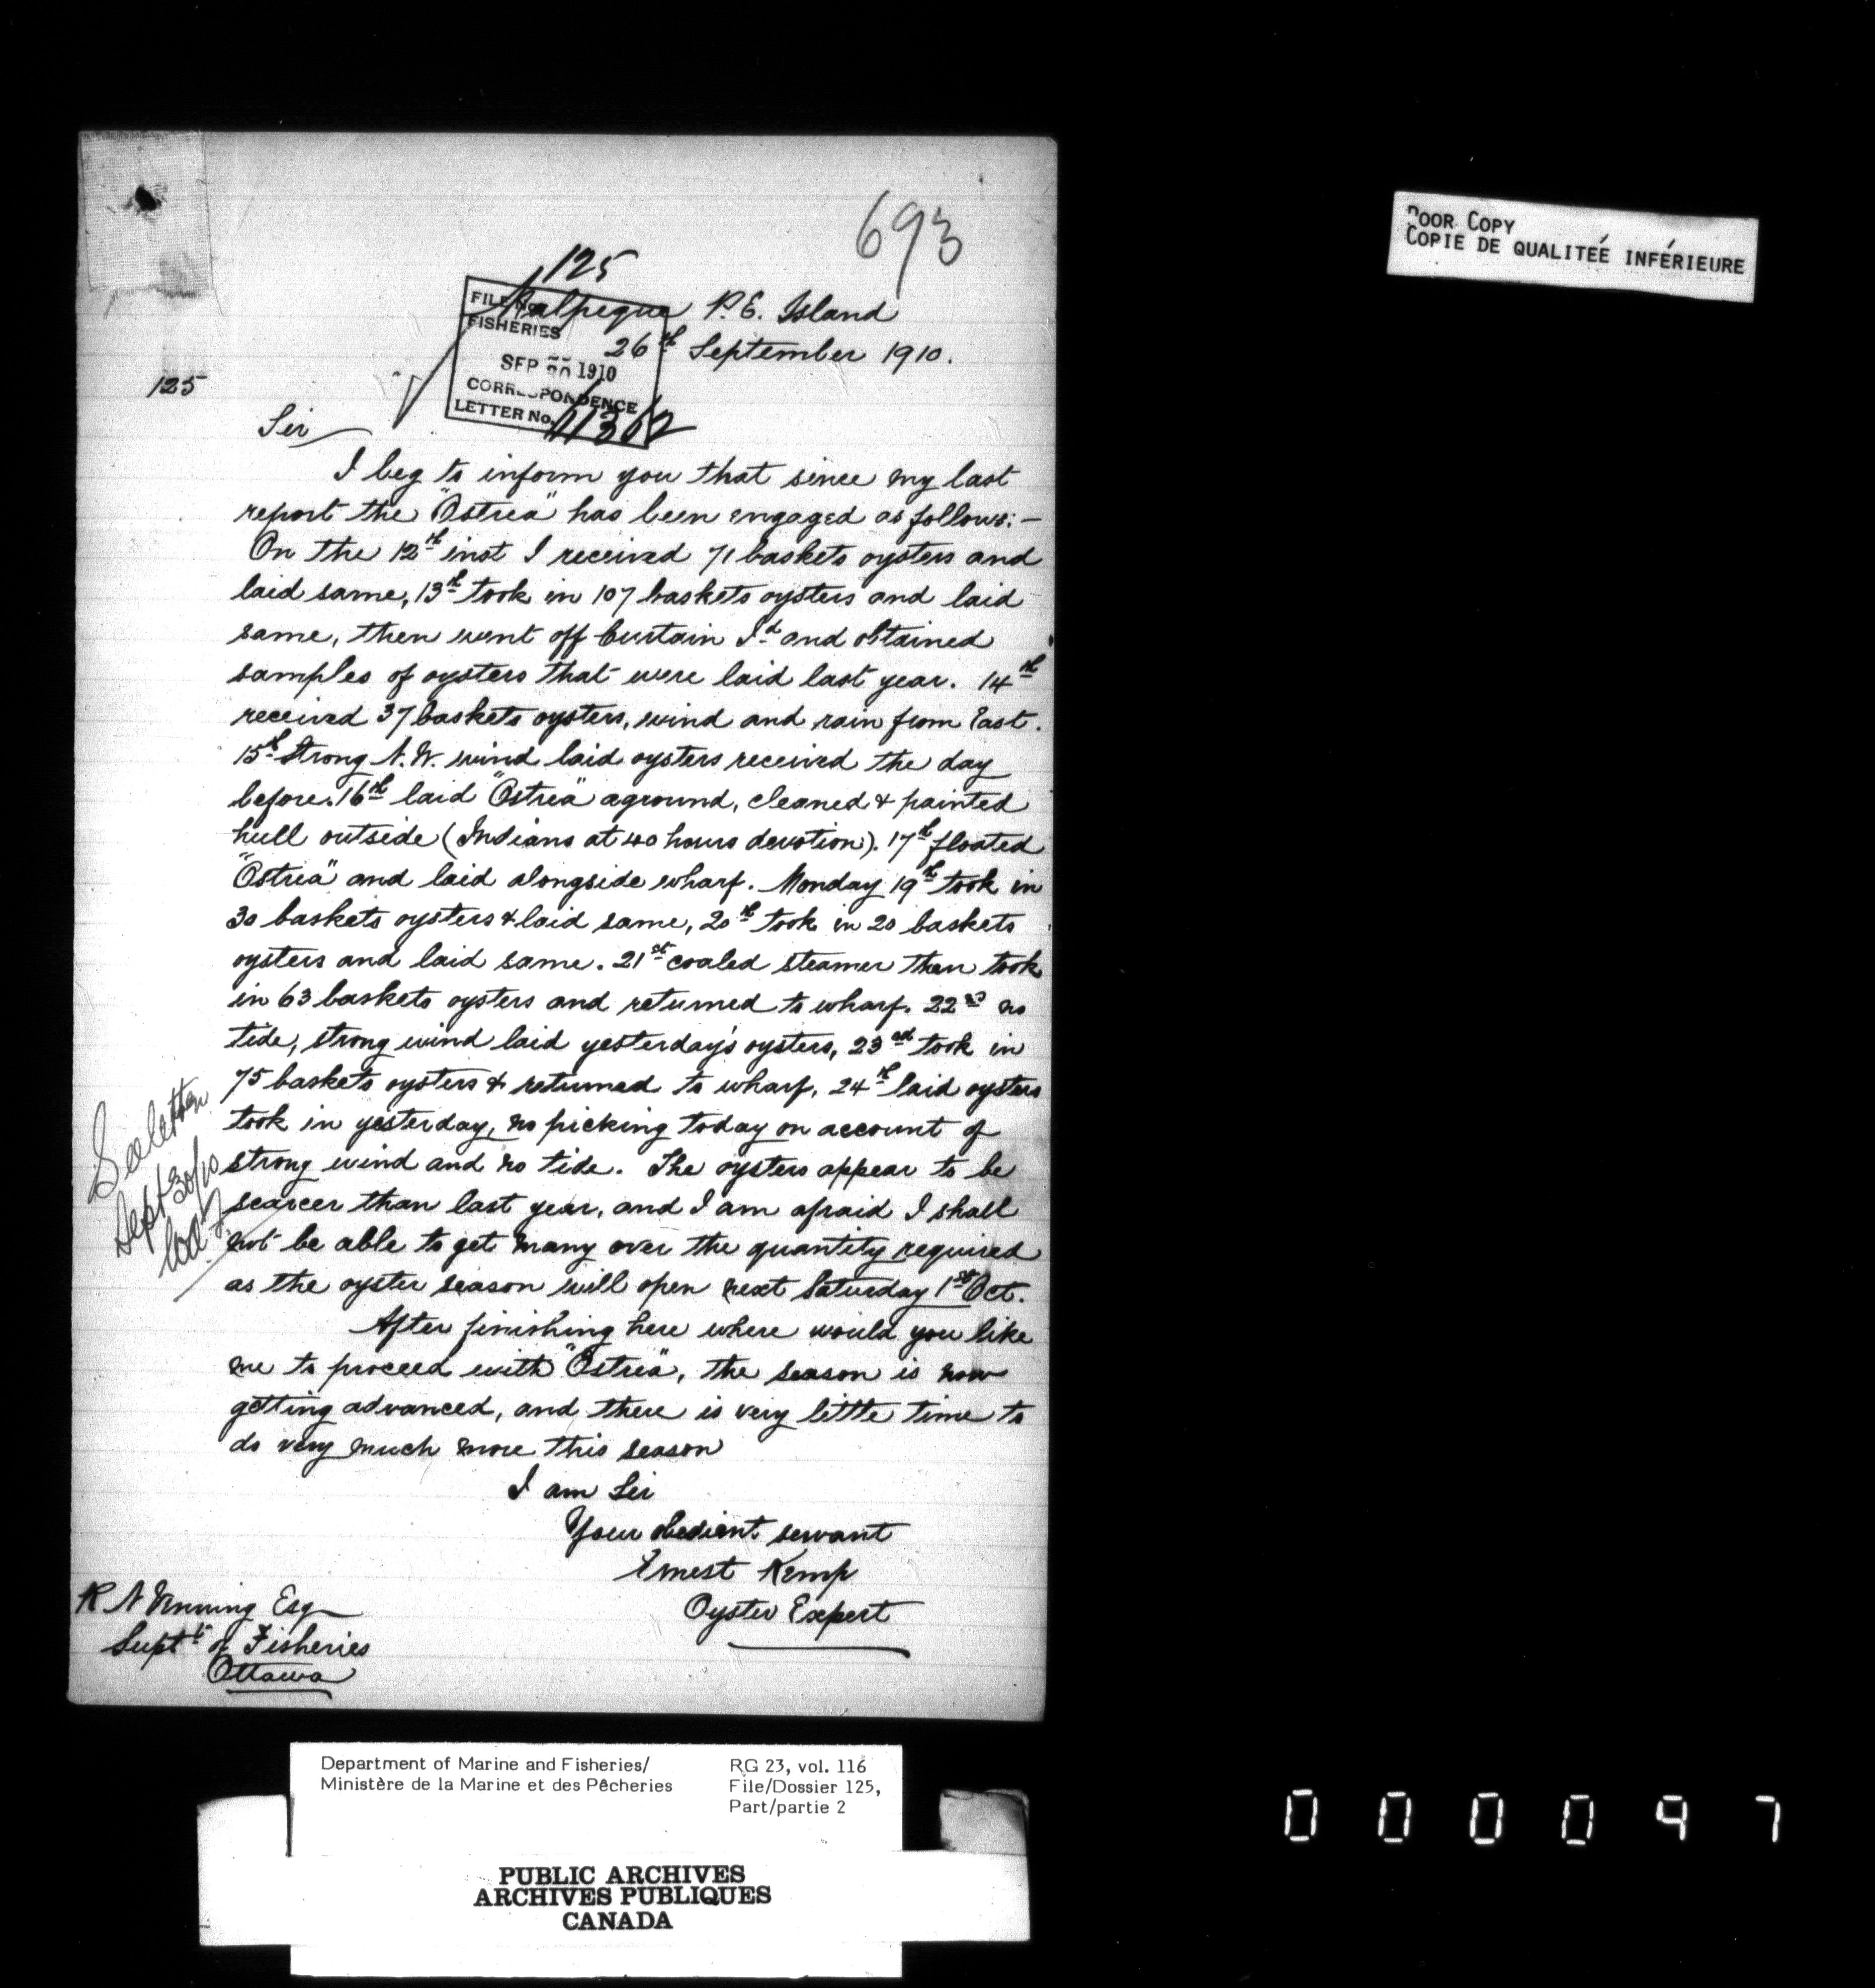 693
125
Malpeque P. E. Island
26th September 1910.
FILE No.
FISHERIES
SEP 1910
CORRESPONDENCE
LETTER No.
125
Sir
I beg to inform you that since my last
report the "Ostrea" has been engaged as follows:-
On the 12th inst I received 71 baskets oysters and
laid same, 13th took in 107 baskets oysters and laid
same, then went off Curtain Id and obtained
samples of oysters that were laid last year. 14th
received 37 baskets oysters, wind and rain from East.
15th Strong N.W. wind laid oysters received the day
before. 16th laid "Ostrea" aground, cleaned & painted
hull outside (Indians at 40 hours devotion). 17th floated
"Ostrea" and laid alongside wharf. Monday 19th took in
30 baskets oysters & laid same, 20th took in 20 baskets
oysters and laid same. 21st coaled steamer then took
in 63 baskets oysters and returned to wharf. 22nd no
tide, strong wind laid yesterday's oysters, 23rd took in
75 baskets oysters & returned to wharf, 24th laid oysters
took in yesterday, no picking today on account of
strong wind and no tide. The oysters appear to be
scarcer than last year, and I am afraid I shall
not be able to get many over the quantity required
as the oyster season will open next Saturday 1st Oct.
After finishing here where would you like
me to proceed with "Ostrea", the season is now
getting advanced, and there is very little time to
do very much more this season
I am Sir
Your obedient servant
Ernest Kemp
Oyster Expert
R N Venning Esq
Supt of Fisheries
Ottawa
Sept 30/10
POOR COPY
COPIE DE QUALITEÉ INFÉRIEURE
Department of Marine and Fisheries/
Ministère de la Marine et des Pêcheries
RG 23, vol. 116
File/Dossier 125,
Part/partie 2
PUBLIC ARCHIVES
ARCHIVES PUBLIQUES
CANADA
000097